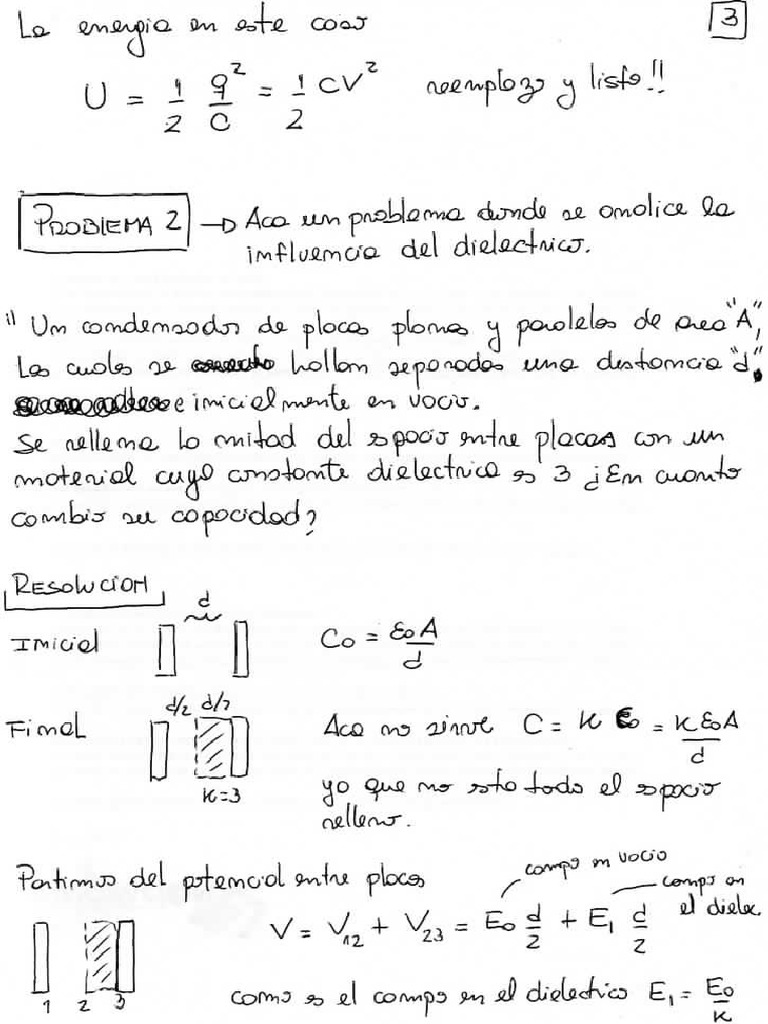 La energia en este caso
3
U = 1/2 q²/C = 1/2 CV² reemplazo y listo!!
PROBLEMA 2 → Aca un problema donde se analice la
influencia del dielectrico.
1) Un condensador de placas planas y paralelas de area "A",
Las cuales se hallan separadas una distancia "d",
e inicialmente en vacio.
Se rellena la mitad del espacio entre placas con un
material cuya constante dielectrica es 3 ¿En cuanto
cambio su capacidad?
RESOLUCION
d
Inicial
C₀ = ε₀A/d
d/2 d/2
Final
K=3
Aca no sirve C = K C₀ = Kε₀A/d
ya que no esta todo el espacio
relleno.
Partimos del potencial entre placas
campo en vacio
campo en
el dielec.
V = V₁₂ + V₂₃ = E₀ d/2 + E₁ d/2
1 2 3
como es el campo en el dielectrico E₁ = E₀/K